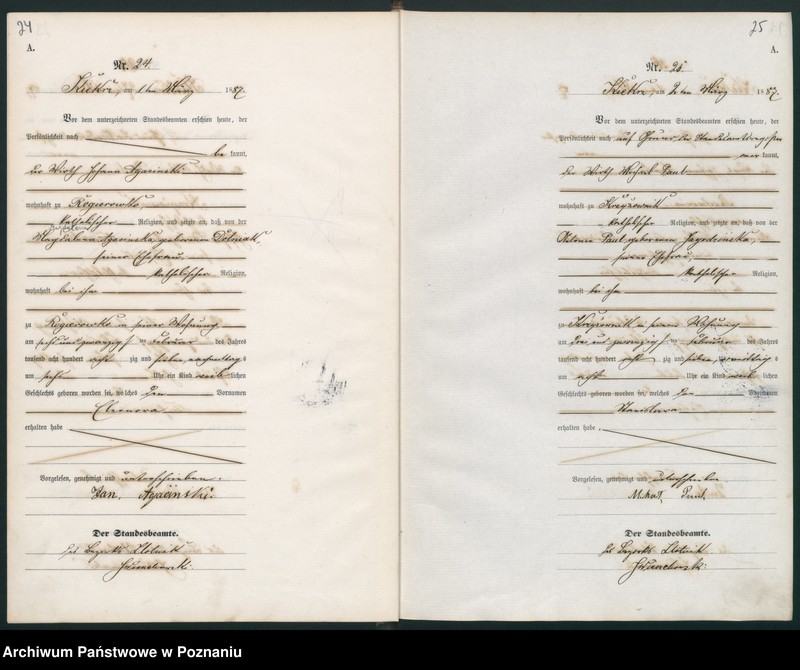 24
A.
Nr. 24.
Kiekrz, am 1ten März 1887.
Vor dem unterzeichneten Standesbeamten erschien heute, der
Persönlichkeit nach
be kannt,
der Wirth Johann Agacinski
wohnhaft zu Rogierowko
katholischer Religion, und zeigte an, daß von der
Magdalena Agacinska geborenen Dolniak
seiner Ehefrau
katholischer Religion,
wohnhaft bei ihm
zu Rogierowko in seiner Wohnung
am sechs und zwanzigsten Februar des Jahres
tausend acht hundert acht zig und sieben, nachmittag s
um sechs Uhr ein Kind weib lichen
Geschlechts geboren worden sei, welches den Vornamen
Eleonora
erhalten habe
Vorgelesen, genehmigt und unterschrieben.
Jan Agacinski.
Der Standesbeamte.
des Bezirks Zlotnik
25
A.
Nr. 25
Kiekrz, am 2ten März 1887.
Vor dem unterzeichneten Standesbeamten erschien heute, der
Persönlichkeit nach auf Grund der
kannt,
der Wirth Michael Paul
wohnhaft zu Krzyzownik
katholischer Religion, und zeigte an, daß von der
Paul geborenen
seiner Ehefrau,
katholischer Religion,
wohnhaft bei ihm
zu Krzyzownik in seiner Wohnung
am drei und zwanzigsten Februar des Jahres
tausend acht hundert acht zig und sieben, vormittag s
um acht Uhr ein Kind weib lichen
Geschlechts geboren worden sei, welches den Vornamen
Stanislawa
erhalten habe
Vorgelesen, genehmigt und unterschrieben
Paul.
Der Standesbeamte.
des Bezirks Zlotnik
Archiwum Państwowe w Poznaniu